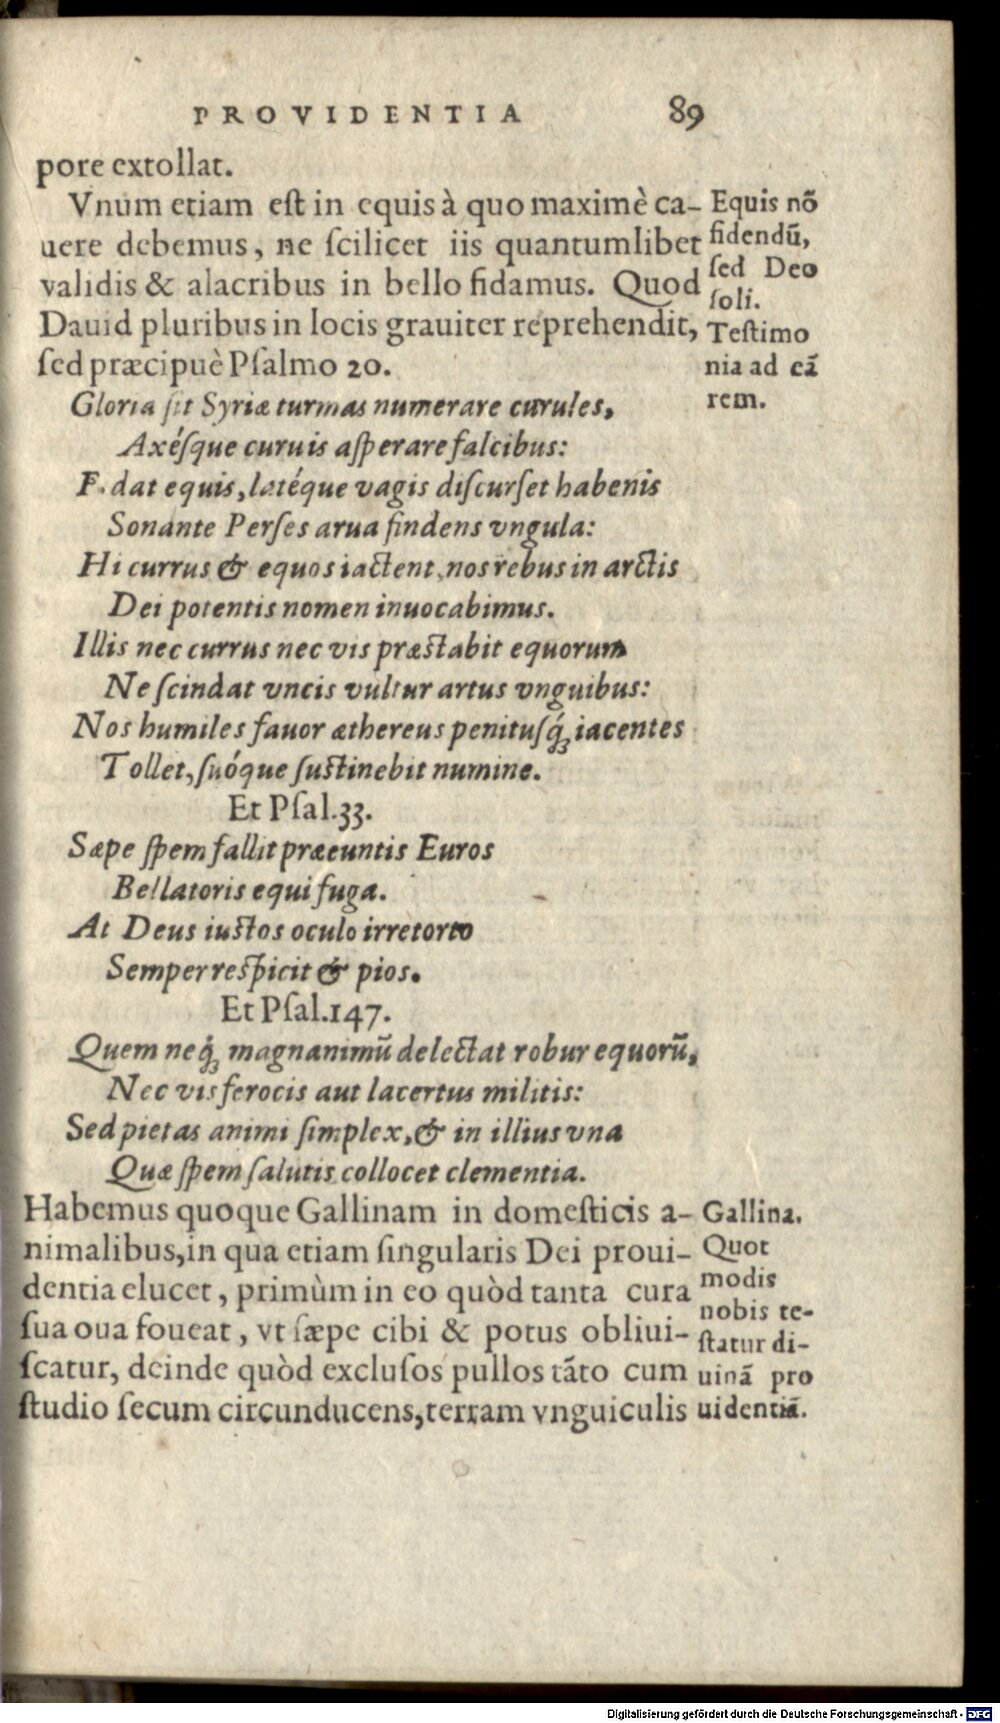 PROVIDENTIA 89
pore extollat.
Vnum etiam eſt in equis à quo maximè ca-
uere debemus, ne ſcilicet iis quantumlibet
validis & alacribus in bello fidamus. Quod
Dauid pluribus in locis grauiter reprehendit,
ſed præcipuè Pſalmo 20.
Equis nõ
fidendũ,
ſed Deo
ſoli.
Teſtimo
nia ad eã
rem.
Gloria ſit Syriæ turmas numerare curules,
Axéſque curuis aſperare falcibus:
F.dat equis, latéque vagis diſcurſet habenis
Sonante Perſes arua findens vngula:
Hi currus & equos iactent, nos rebus in arctis
Dei potentis nomen inuocabimus.
Illis nec currus nec vis præſtabit equorum
Ne ſcindat vncis vultur artus vnguibus:
Nos humiles fauor æthereus penitusq́; iacentes
Tollet, ſuóque ſuſtinebit numine.
Et Pſal.33.
Sæpe ſpem fallit præeuntis Euros
Bellatoris equi fuga.
At Deus iuſtos oculo irretorto
Semper reſpicit & pios.
Et Pſal.147.
Quem neq́; magnanimũ delectat robur equorũ,
Nec vis ferocis aut lacertus militis:
Sed pietas animi ſimplex, & in illius vna
Quæ ſpem ſalutis collocet clementia.
Habemus quoque Gallinam in domeſticis a-
nimalibus, in qua etiam ſingularis Dei proui-
dentia elucet, primùm in eo quòd tanta cura
ſua oua foueat, vt ſæpe cibi & potus obliui-
ſcatur, deinde quòd excluſos pullos tãto cum
ſtudio ſecum circunducens, terram vnguiculis
Gallina.
Quot
modis
nobis te-
ſtatur di-
uinã pro
uidentiã.
Digitalisierung gefördert durch die Deutsche Forschungsgemeinschaft - DFG